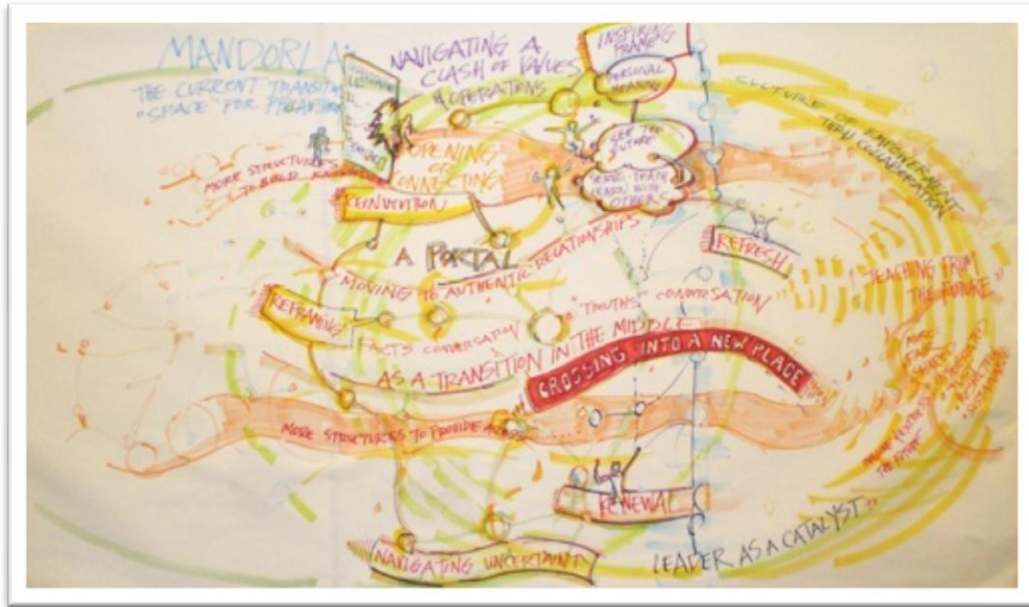 MANDORLA:
THE CURRENT TRANSITION
"SPACE" FOR
NAVIGATING A
CLASH OF VALUES
& OPERATIONS
INSPIRING
FRAME
PERSONAL
MEANING
SEE THE
FUTURE
LEARN WITH
OTHERS
CULTURE OF EMPOWERMENT
COLLABORATION
MORE STRUCTURES
TO BUILD
OPENING
OR
CONNECTING
REINVENTION
A PORTAL
MOVING TO AUTHENTIC RELATIONSHIPS
REFRESH
"TEACHING FROM
THE FUTURE"
REFRAMING
FACTS CONVERSATION
"TRUTHS" CONVERSATION
AS A TRANSITION IN THE MIDDLE
CROSSING INTO A NEW PLACE
MORE STRUCTURES TO PROVIDE
RENEWAL
NAVIGATING UNCERTAINTY
LEADER AS A CATALYST